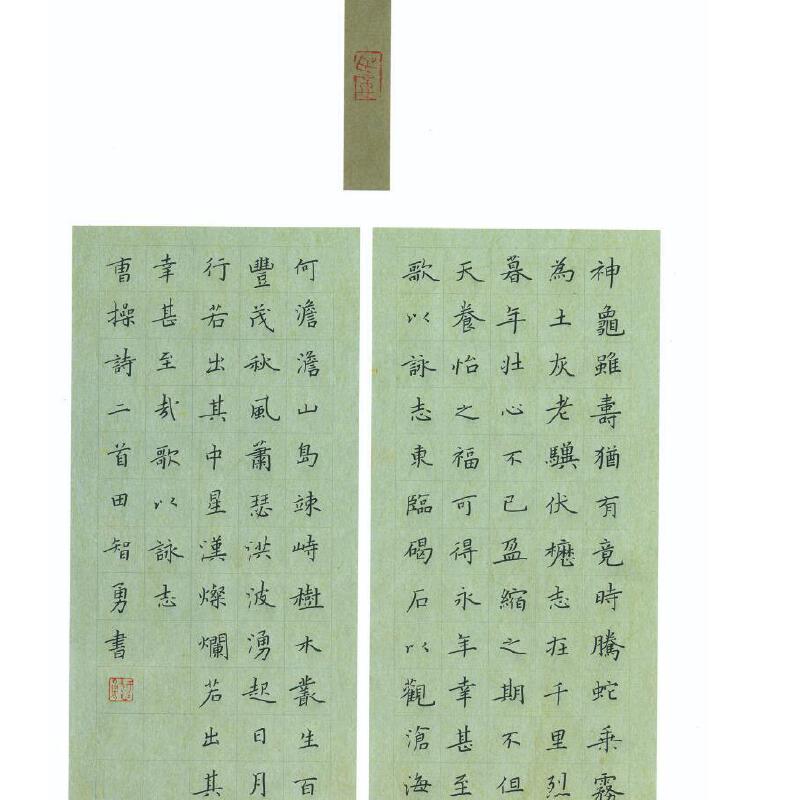 神龜雖壽猶有竟時騰蛇乘霧
為土灰老驥伏櫪志在千里烈
暮年壯心不已盈縮之期不但
天養怡之福可得永年幸甚至
歌以詠志東臨碣石以觀滄海
何澹澹山島竦峙樹木叢生百
豐茂秋風蕭瑟洪波湧起日月
行若出其中星漢燦爛若出其
幸甚至哉歌以詠志
曹操詩二首田智勇書